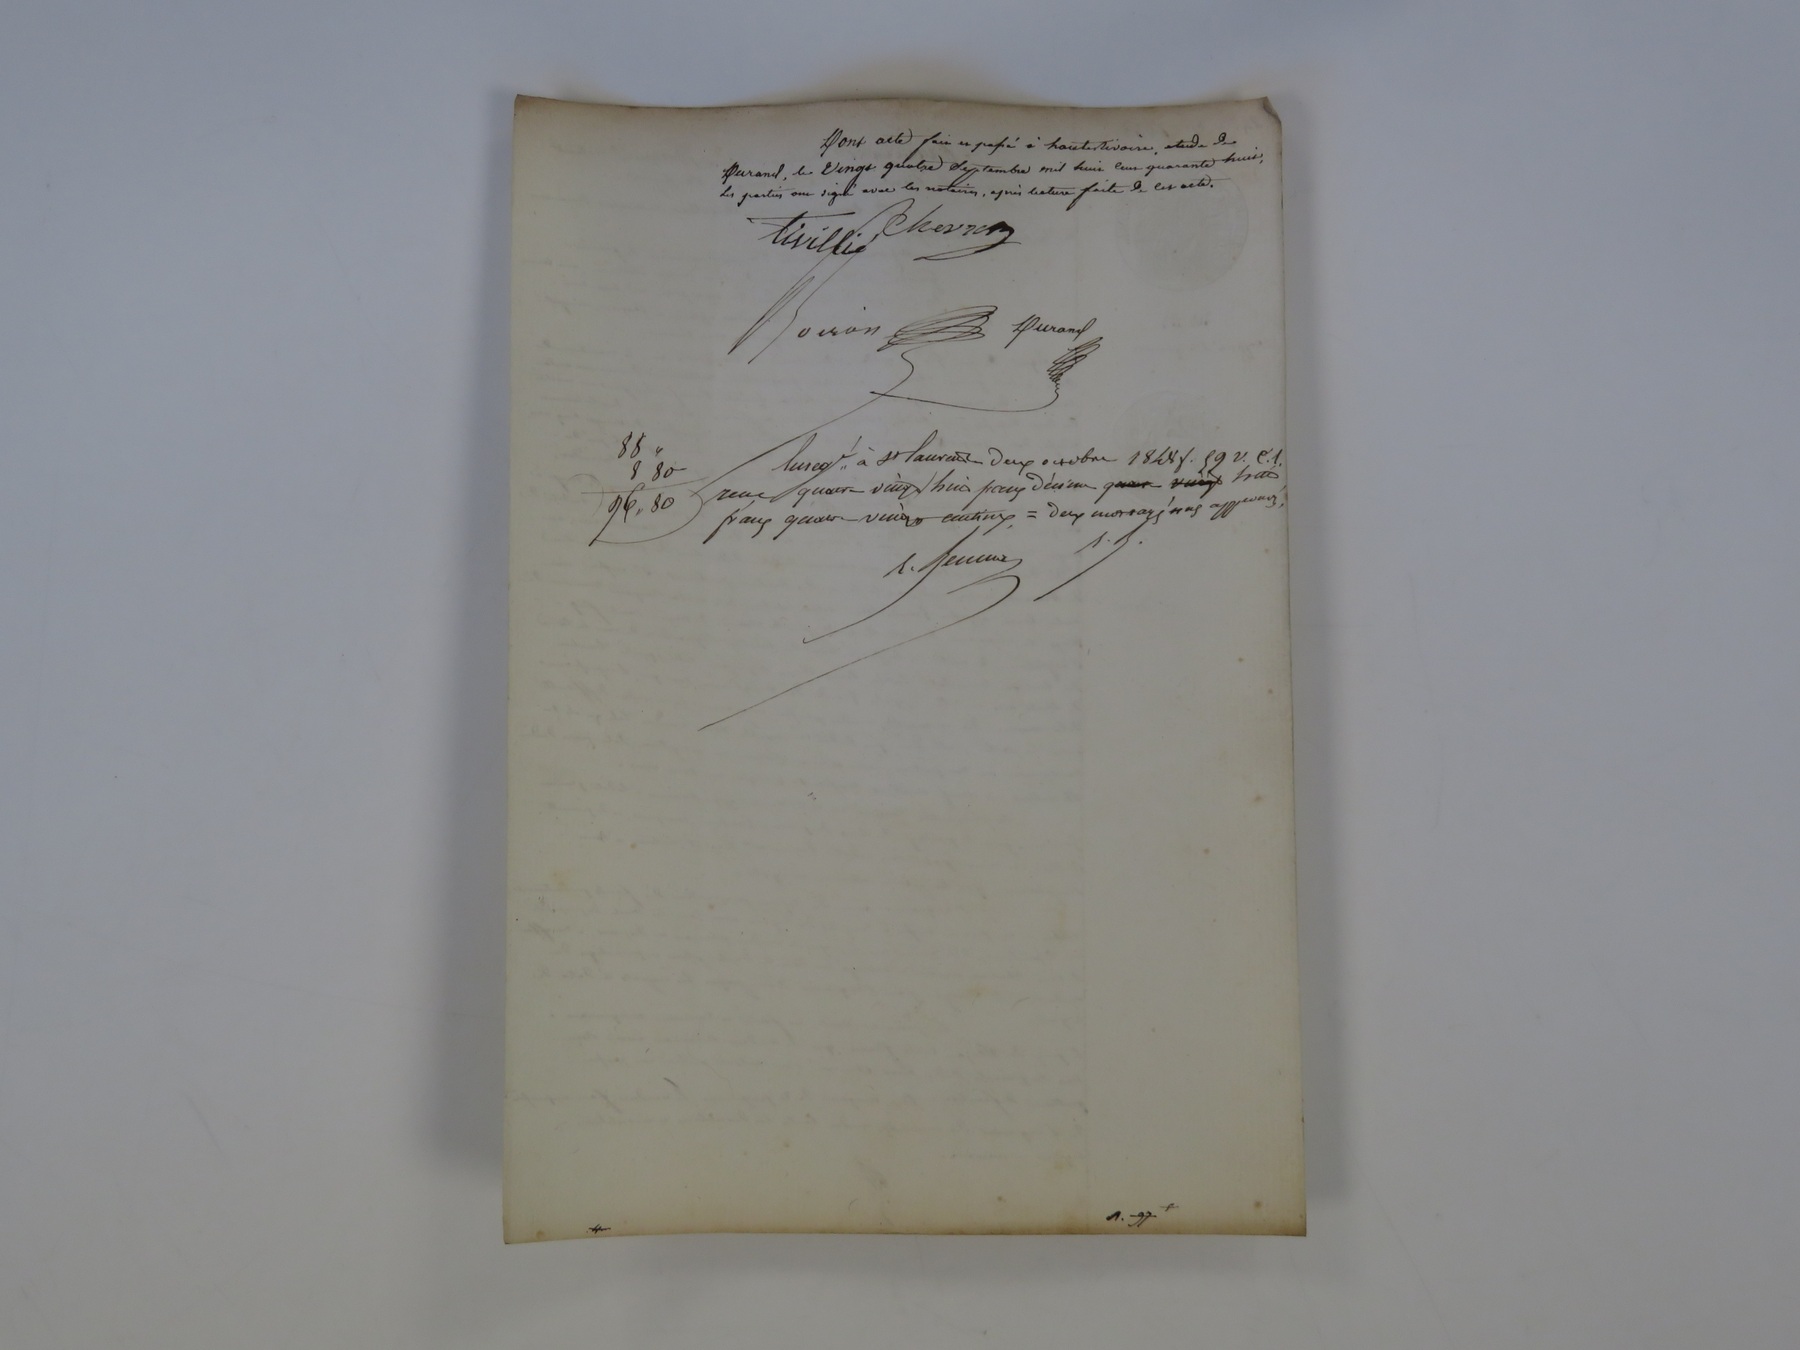 Dont acte, fait et passé à hauterivoire, étude de
Durand, le Vingt quatre Septembre mil huit cent quarante huit,
Les parties ont signé avec les notaires, après lecture faite de cet acte.
Chevron
Durand
88 "
8 80
96,, 80
Enreg.é à St Laurent deux octobre 1848 f. 59 v. C. 1.
reçu quatre vingt huit francs décime quatre vingt huit
francs quatre vingt centimes = deux mots rayés nuls approuvés,